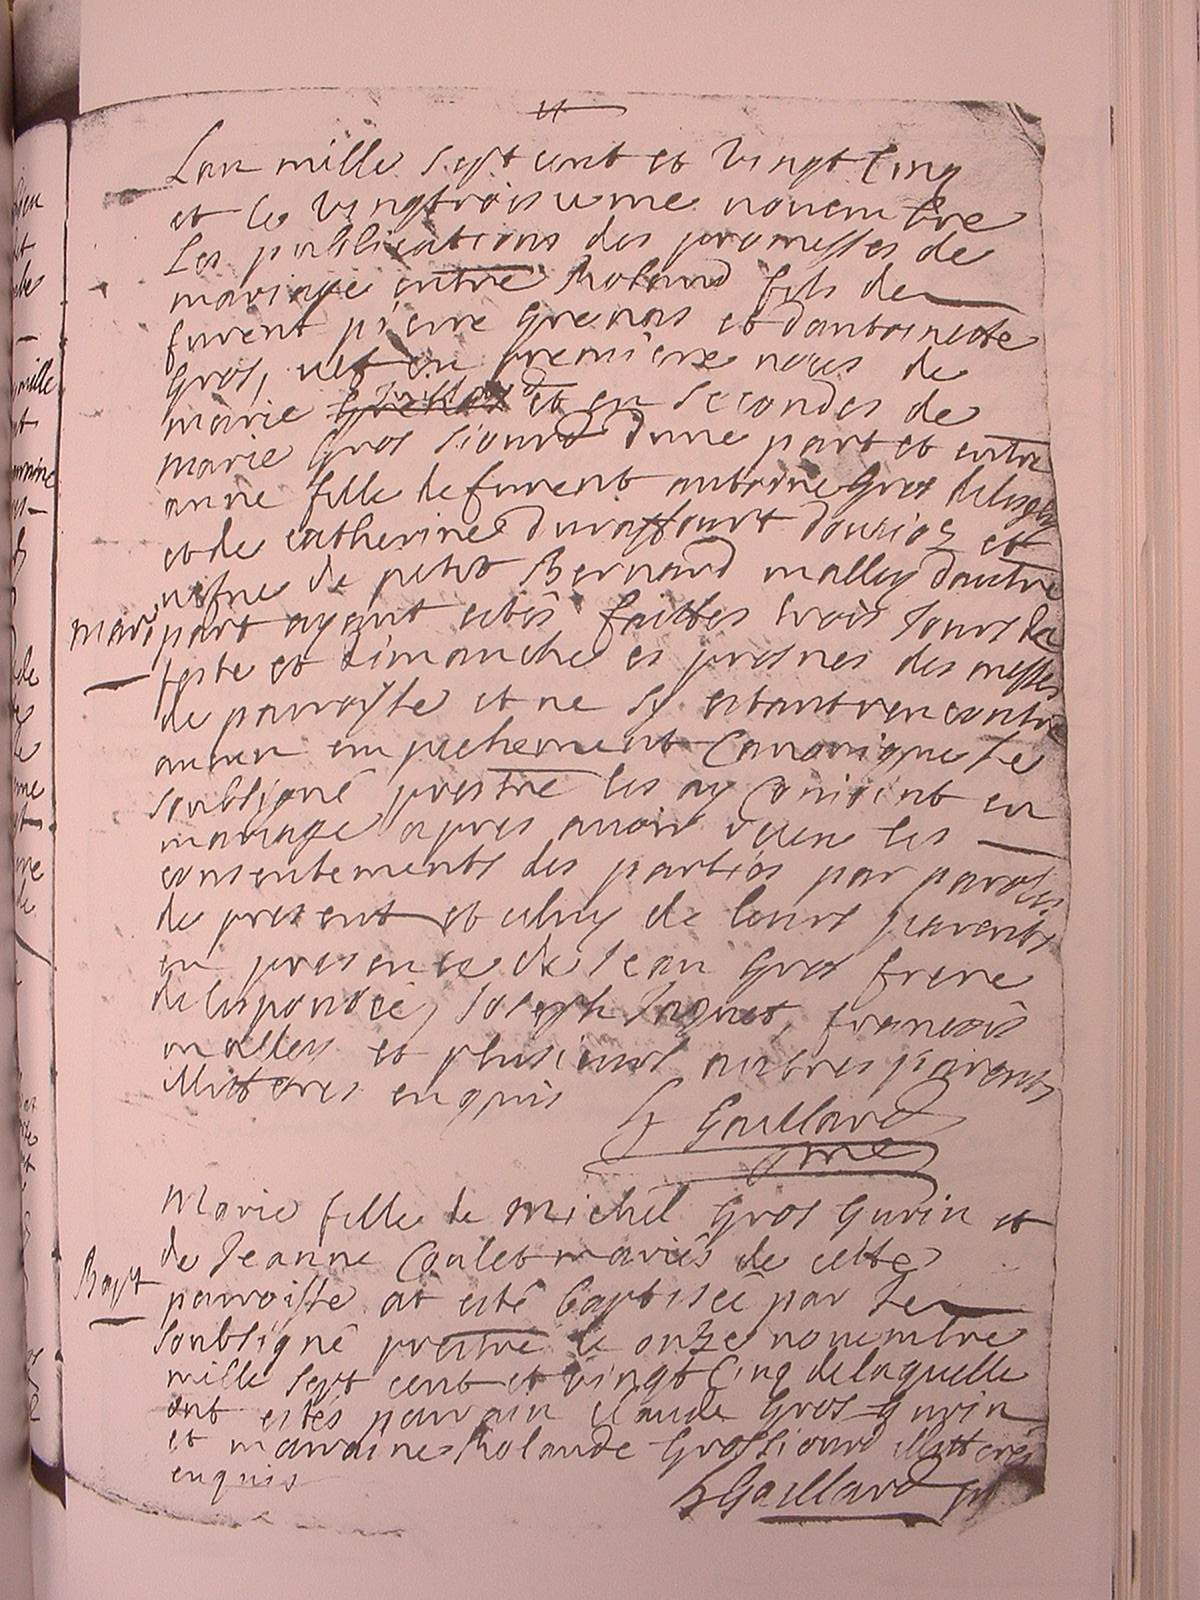 Lan mille sept cent et vingt Cinq
et le vingtroisieme nouembre
Les publications des promesses de
mariage entre Roland fils de
furent pierre grenas et dantoinette
gros, uef en premiere nous de
marie Grenas et en Secondes de
marie gros siourd dune part et entre
anne fille de furent antoine gros
et de catherine duraffourt et
uefue de petit Bernard malley dautre
Mari part ayant estés faittes trois Jours de
feste et dimanche es prosnes des messes
de parroisse et ne sy estant rencontré
aucun empechement Canonique Je
soubsigné prestre les ay Conioint en
mariage apres auoir receu les
consentements des parties par parolles
de present et celuy de leurs parents
en presence de Jean gros frere
de lesponsée, Joseph Jnguet, francois
malley et plusieurs autres parents
illitterés enquis
Gaillard
Marie fille de Michel gros gurin et
de Jeanne Coulet mariés de cette
Bapt parroisse at esté baptisée par Je
soubsigné prestre le onze nouembre
mille sept cent et vingt Cinq de laquelle
ont estés parrain claude gros gurin
et marraine Rolande gros siourd illitterés
enquis
Gaillard